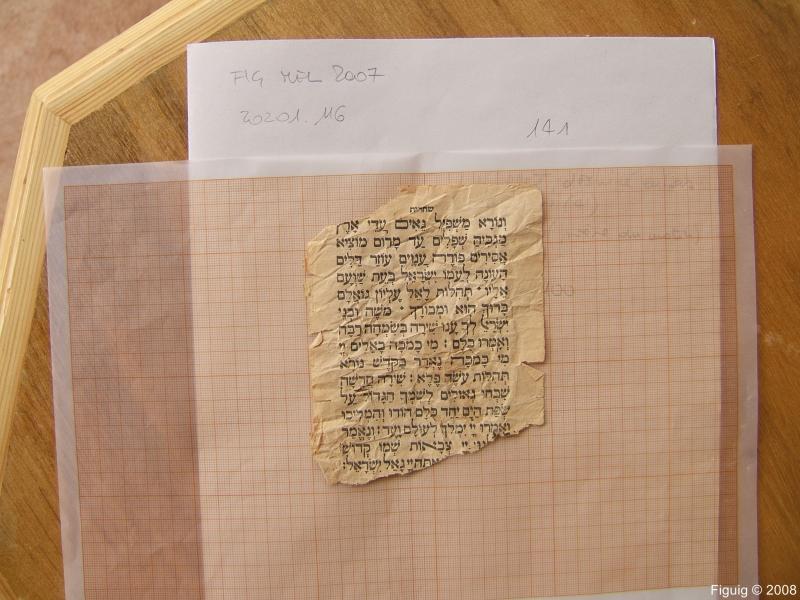 FIG MEL 2007
20201.116
141
שחרית
וְנוֹרָא מַשְׁפִּיל גֵּאִים עֲדֵי אָרֶץ
מַגְבִּיהַּ שְׁפָלִים עַד מָרוֹם מוֹצִיא
אֲסִירִים פּוֹדֶה עֲנָוִים עוֹזֵר דַּלִּים
הָעוֹנֶה לְעַמּוֹ יִשְׂרָאֵל בְּעֵת שַׁוְּעָם
אֵלָיו תְּהִלּוֹת לָאֵל עֶלְיוֹן גּוֹאֲלָם
בָּרוּךְ הוּא וּמְבוֹרָךְ מֹשֶׁה וּבְנֵי
יִשְׂרָאֵל לְךָ עָנוּ שִׁירָה בְּשִׂמְחָה רַבָּה
וְאָמְרוּ כֻלָּם: מִי כָמֹכָה בָּאֵלִים יְיָ
מִי כָּמֹכָה נֶאְדָּר בַּקֹּדֶשׁ נוֹרָא
תְהִלּוֹת עֹשֵׂה פֶלֶא: שִׁירָה חֲדָשָׁה
שִׁבְּחוּ גְאוּלִים לְשִׁמְךָ הַגָּדוֹל עַל
שְׂפַת הַיָּם יַחַד כֻּלָּם הוֹדוּ וְהִמְלִיכוּ
וְאָמְרוּ יְיָ יִמְלֹךְ לְעוֹלָם וָעֶד: וְנֶאֱמַר
יְיָ צְבָאוֹת שְׁמוֹ קְדוֹשׁ
אַתָּה יְיָ גָּאַל יִשְׂרָאֵל:
Figuig © 2008